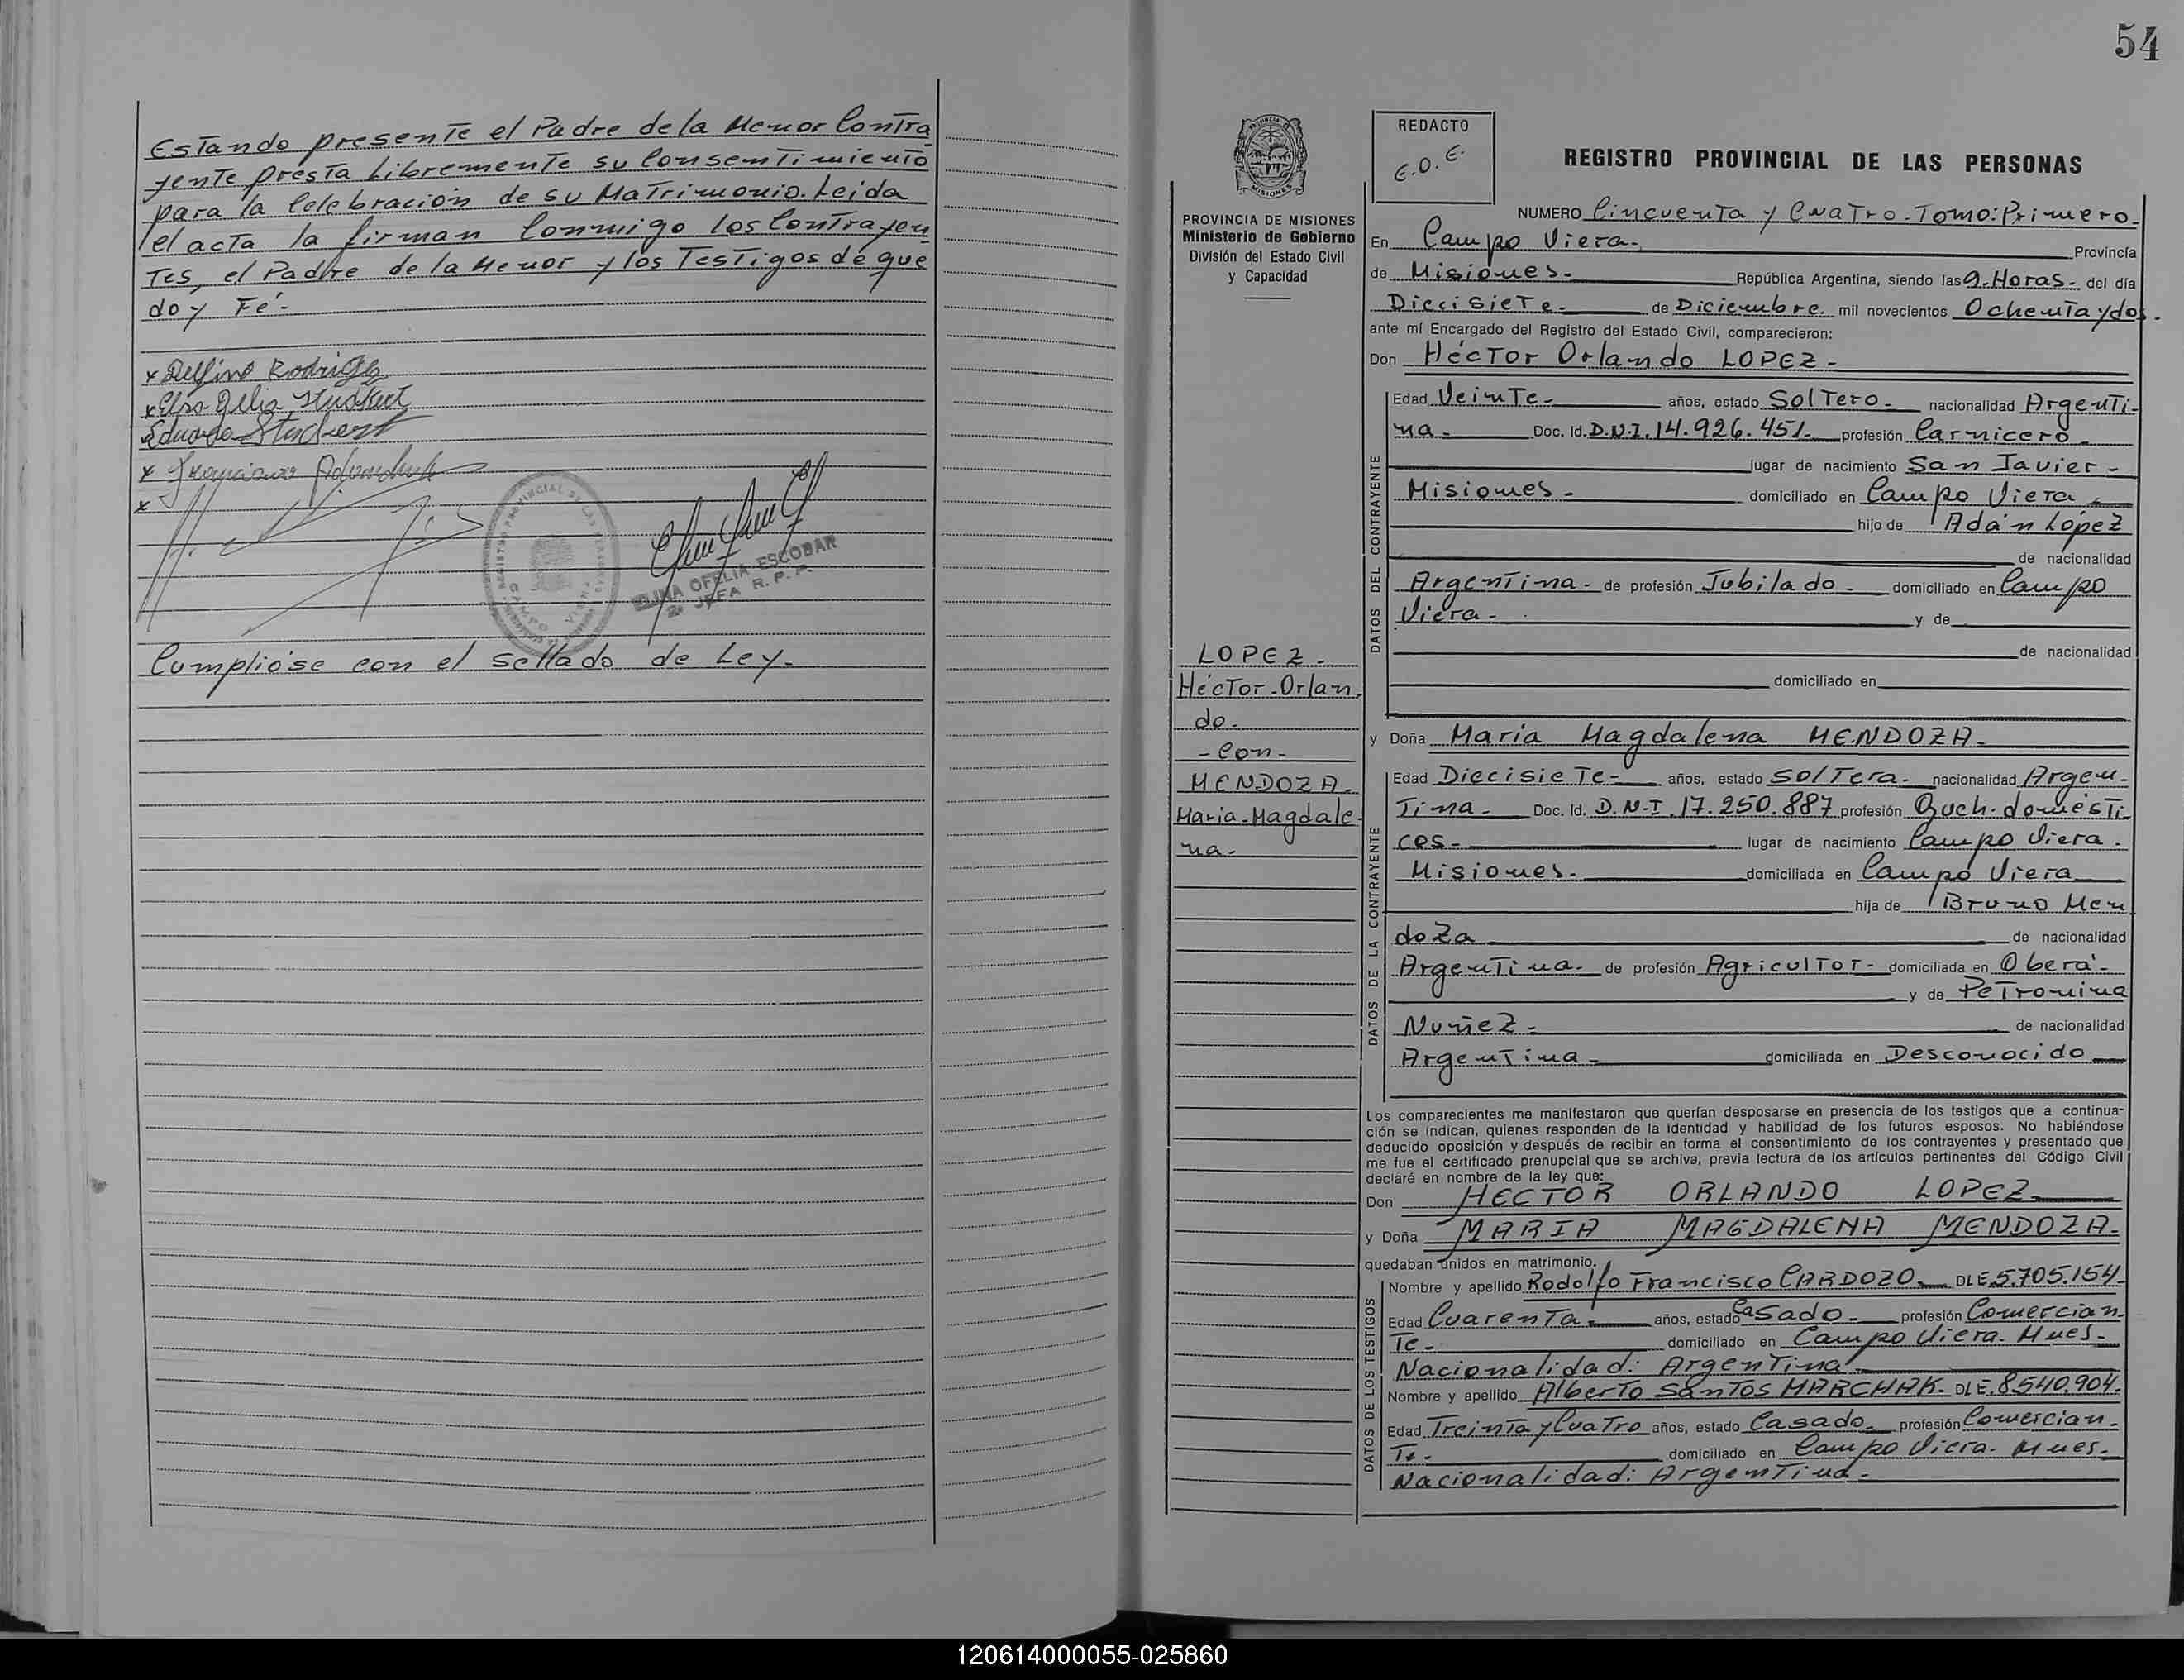 Estando presente el Padre de la Menor Contra
yente presta Libremente su Consentimiento
para la Celebración de su Matrimonio. Leida
el acta la firman Conmigo los Contrayen
Tes, el Padre de la Menor y los Testigos de que
doy Fé.-
x Delfino Rodrig
x Elsa Studert
Eduardo Studert
x
x
REGISTRO PROVINCIAL DE LAS PERSONAS
CAMPO VIERA
ELINA OFELIA ESCOBAR
JEFA R. P. P.
Cumplióse con el sellado de Ley.-
54
PROVINCIA DE MISIONES
Ministerio de Gobierno
División del Estado Civil
y Capacidad
LOPEZ.-
Héctor-Orlan
do.
-Con-
MENDOZA.
Maria-Magdale
na.-
REDACTO
E.O.E.
REGISTRO PROVINCIAL DE LAS PERSONAS
NUMERO Cincuenta y Cuatro-Tomo: Primero-
En Campo Viera- Provincia
de Misiones- República Argentina, siendo las 9-Horas- del día
Diecisiete- de Diciembre. mil novecientos Ochenta y dos.-
ante mí Encargado del Registro del Estado Civil, comparecieron:
Don Héctor Orlando LOPEZ-
DATOS DEL CONTRAYENTE
Edad Veinte- años, estado SolTero- nacionalidad Argenti-
na- Doc. Id. D.N.I. 14.926.451- profesión Carnicero-
lugar de nacimiento San Javier-
Misiones- domiciliado en Campo Viera-
hijo de Adán López
de nacionalidad
Argentina- de profesión Jubilado- domiciliado en Campo
Viera- y de
de nacionalidad
domiciliado en
y Doña Maria Magdalena MENDOZA-
DATOS DE LA CONTRAYENTE
Edad Diecisiete- años, estado Soltera- nacionalidad Argen-
Tina- Doc. Id. D.N-I. 17.250.887 profesión Quch. domésTi
ces- lugar de nacimiento Campo Viera.
Misiones- domiciliada en Campo Viera
hija de Bruno Men
doza de nacionalidad
Argentina- de profesión Agricultor- domiciliada en Oberá-
y de Petronina
Nuñez- de nacionalidad
Argentina- domiciliada en Desconocido
Los comparecientes me manifestaron que querían desposarse en presencia de los testigos que a continua-
ción se indican, quienes responden de la identidad y habilidad de los futuros esposos. No habiéndose
deducido oposición y después de recibir en forma el consentimiento de los contrayentes y presentado que
me fue el certificado prenupcial que se archiva, previa lectura de los artículos pertinentes del Código Civil
declaré en nombre de la ley que:
Don HECTOR ORLANDO LOPEZ
y Doña MARIA MAGDALENA MENDOZA-
quedaban unidos en matrimonio.
DATOS DE LOS TESTIGOS
Nombre y apellido Rodolfo Francisco CARDOZO DLE 5.705.154
Edad Cuarenta- años, estado Casado- profesión Comercian-
Te- domiciliado en Campo Viera. Mnes-
Nacionalidad: Argentina-
Nombre y apellido Alberto Santos MARCHAK- DLE. 8.540.904.
Edad Treinta y Cuatro años, estado Casado- profesión Comercian-
Te- domiciliado en Campo Viera- Mnes-
Nacionalidad: Argentina-
120614000055-025860